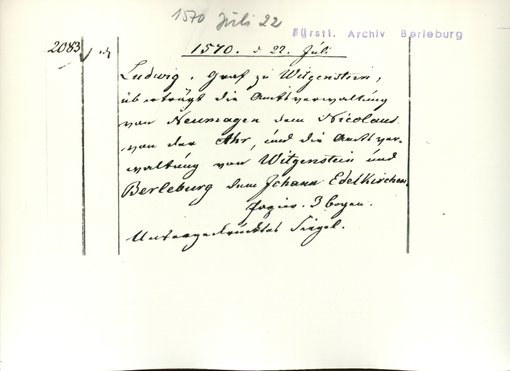 1570 Juli 22
Fürstl. Archiv Berleburg
2083
1570. d 22. Juli
Ludwig, Graf zu Witgenstein,
überträgt die Amtsverwaltung
von Neumagen dem Nicolaus
von der Ahr, und die Amtsver-
waltung von Witgenstein und
Berleburg dem Johann Edelkirchen.
Papier. 3 bogen.
Untergedrücktes Siegel.